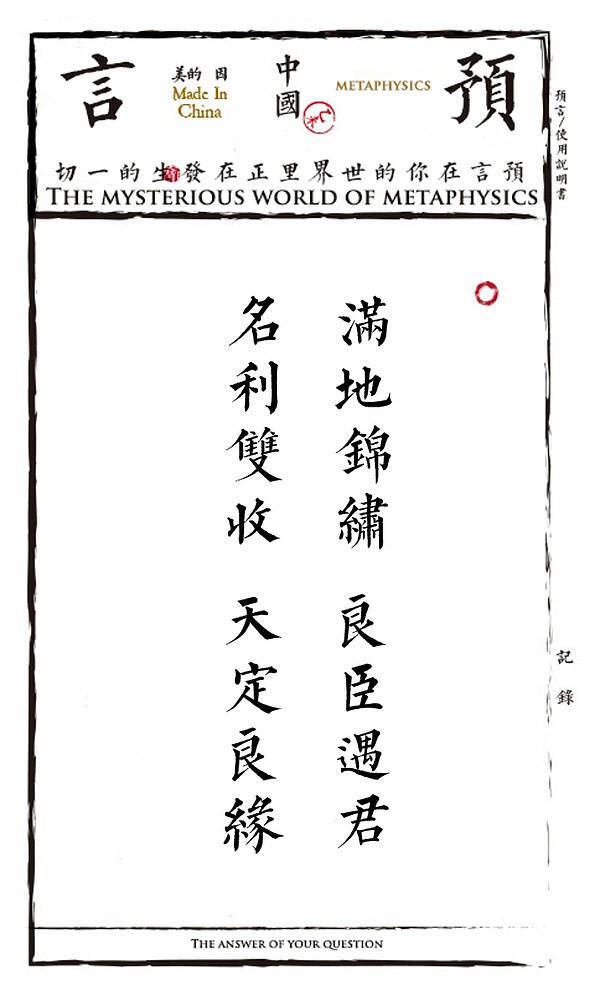 預言
METAPHYSICS
中國
美的 因
Made In
China
預言在你的世界里正在發生的一切
THE MYSTERIOUS WORLD OF METAPHYSICS
預言/使用說明書
滿地錦繡 良臣遇君
名利雙收 天定良緣
記錄
THE ANSWER OF YOUR QUESTION